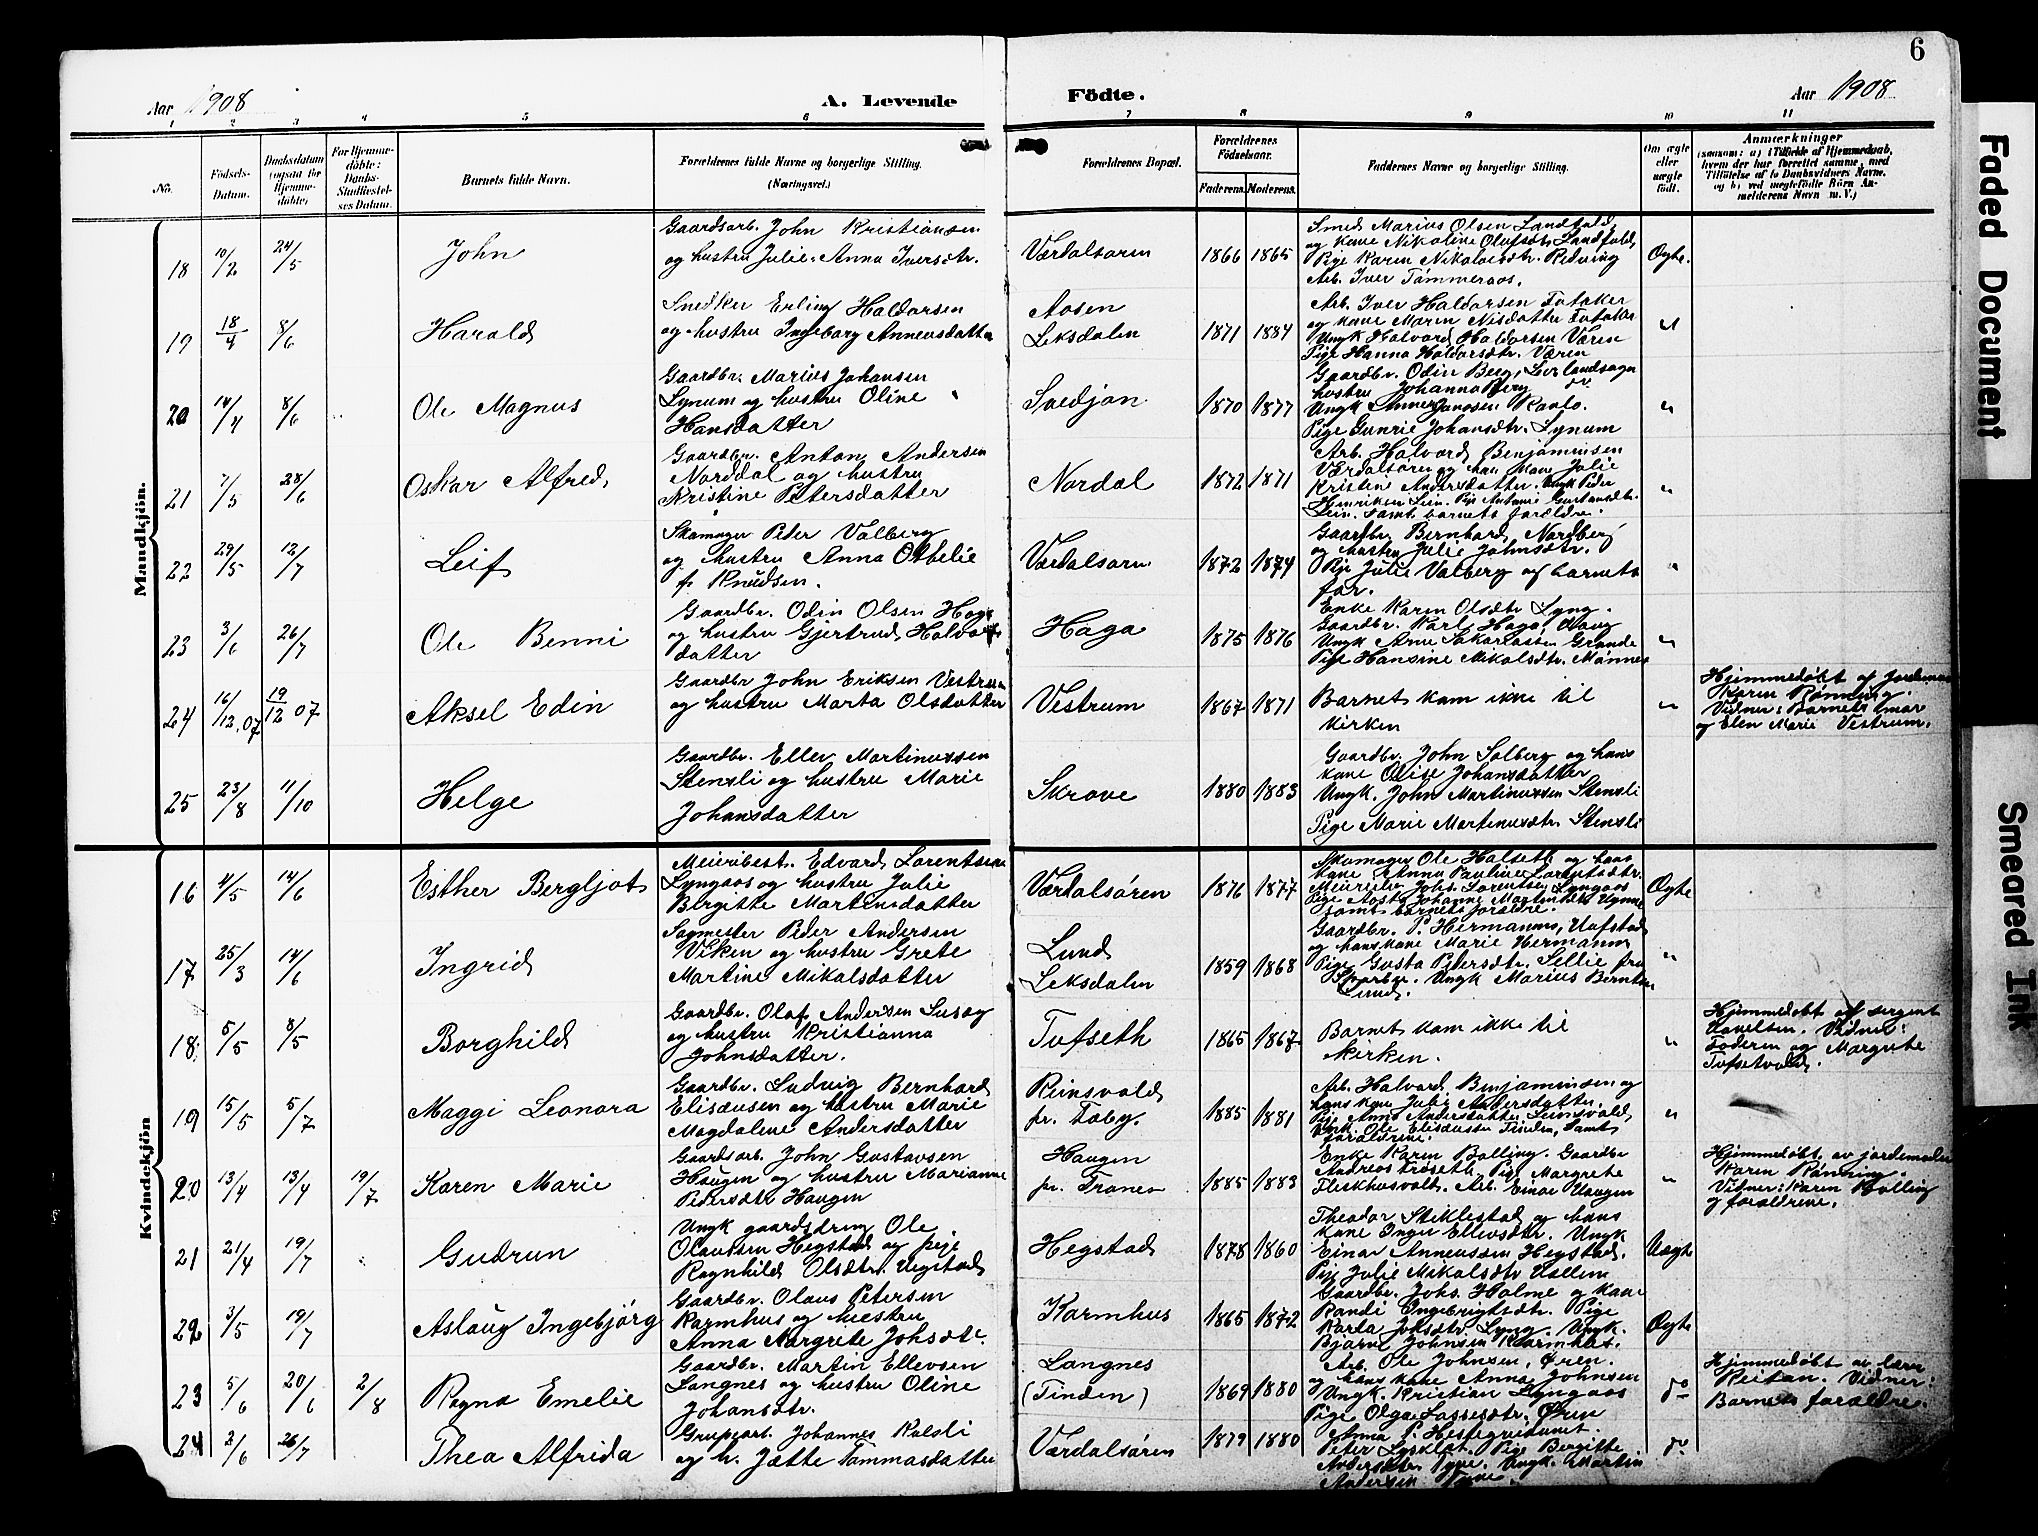 6
Aar 1908
A. Levende
Födte.
Aar 1908
1 2 3 4 5 6 7 8 9 10 11
No.
Födsels-Datum.
Daabsdatum (ogsaa for Hjemme-døbte)
For Hjemme-döbte: Daabs-Stadfæstel-ses Datum.
Barnets fulde Navn.
Forældrenes fulde Navne og borgerlige Stilling.
(Næringsvei.)
Forældrenes Bopæl.
Forældrenes Födselsaar.
Faderens. Moderens.
Faddernes Navne og borgerlige Stilling.
Om ægte eller uægte födt.
Anmærkninger
(saasom: a) i Tilfælde af Hjemmedaab, hvem der har forrettet samme, med Tilföielse af to Daabsvidners Navne, og b) ved uægtefödte Börn An-melderens Navn m. V.)
Mandkjön.
18 10/2 24/5 John
Gaardsarb. John Kristiansen
og hustru Julie Anna Iversdtr.
Værdalsøren 1866 1865
Smed Marius Olsen Landfald
og kone Nikoline Olufsdtr. Landfald
Pige Karen Nikolaisdtr. Redving
Arb. Iver Tømmeraas.
Ægte.
19 18/4 8/6 Harald
Snedker Erling Haldorsen
og hustru Ingeborg Anneusdatter
Aasen
Leksdalen 1871 1884
Arb. Iver Haldorsen
og kone Maren
Ungk Halvard Haldorsen Væren
Pige Hanna Haldorsdtr. Væren
"
20 14/4 8/6 Ole Magnus
Gaardbr. Marius Johansen
Lynum og hustru Oline
Hansdatter
Svedjan 1870 1877
Gaardbr. Odin Berg,
hustru Johanna Berg
Ungk
Pige Gunrie Johansdtr. Lynum
"
21 7/5 28/6 Oskar Alfred
Gaardbr. Anton Andersen
Norddal og hustru
Kristine Petersdatter
Nordal 1872 1871
Arb. Halvard Benjaminsen
Værdalsøren og hans kone Julie
Kristine Andersdatter. Ungk Peder
Henriksen Lein. Pige Antonie
Lein. samt barnets forældre.
"
22 29/5 12/7 Leif
Skomager Peter Valberg
og hustru Anna Othelie
f. Knudsen.
Værdalsørn 1872 1874
Gaardbr. Bernhard Nordberg
og hustru Julie Johnsdtr.
Pige Julie Valberg og barnets
far.
"
23 3/6 26/7 Ole Benni
Gaardbr. Odin Olsen Haga
og hustru Gjertrud Halvars
datter
Haga 1875 1876
Enke Karen Olsdtr Lyng.
Gaardbr. Karl Haga,
Ungk Arne Sakariassen Grande
Pige Hansine Mikalsdtr. Mønnes
"
24 16/12.07 19/12 07 Aksel Edin
Gaardbr John Eriksen Vestrum
og hustru Marta Olsdatter
Vestrum 1867 1871
Barnet kom ikke til
kirken
"
Hjemmedøbt af jordemor
Karen Rønning.
Vidner: Barnets mor
og Elen Marie Vestrum.
25 23/8 11/10 Helge
Gaardbr. Ellev Martinussen
Stensli og hustru Marie
Johansdatter
Skrove 1880 1883
Gaardbr. John Solberg og hans
kone Olise Johansdatter
Ungk. John Martinussen Stensli
Pige Marie Martinusdtr. Stensli
Kvindekjön
16 4/5 14/6 Esther Bergljot
Meieribest. Edvard Lorentsen
Lyngaas og hustru Julie
Birgitte Martinsdatter
Værdalsøren 1876 1877
Skomager Ole Halseth og hans
kone Anna Pauline Lorentsdtr.
Johs. Lorentsen Lyngaas
Pige Aasta Johanne
samt barnets forældre.
Ægte
17 25/3 14/6 Ingrid
Sagmester Peder Andersen
Viken og hustru Grete
Martine Mikalsdatter
Lund
Leksdalen 1859 1868
Gaardbr. P. Hermanns,
og hans kone Marie Hermanns
Pige Gusta Petersdtr. Sellie fra
Sparbu. Ungk Marius Berntsen
Lund.
"
18 5/5 8/5 Borghild
Gaardbr. Olaf Andersen Susæg
og hustru Kristianna
Johnsdatter.
Tufseth 1865 1867
Barnet kom ikke til
kirken.
"
Hjemmedøbt af sergent
Havelsen. Vidner:
Foderen og Margrete
Tufsetvold.
19 15/5 5/7 Maggi Leonora
Gaardbr. Ludvig Bernhard
Eliseusen og hustru Marie
Magdalene Andersdatter
Rinsvold
pr. Faby. 1885 1881
Arb. Halvard Benjaminsen og
hans kone Julie Andersdatter.
Pige Anna Andersdatter
Ungk. Ole Eliseussen Tinden, samt
forældrene.
"
20 13/4 13/4 19/7 Karen Marie
Gaardsarb. John Gustavsen
Haugen og hustru Marianne
Pedersdtr Haugen
Haugen
pr. Trones 1885 1883
Enke Karen Bolling. Gaardbr
Andreas Pige Margrete
Fleskhusvald. Arb. Einar Haugen
"
Hjemmedøbt av jordemoder
Karen Rønning.
Vidner: Karen Bolling
og forældrene.
21 21/4 19/7 Gudrun
Ungk gaardsdreng Ole
Olausen Hegstad og pige
Ragnhild Olsdtr Hegstad
Hegstad 1878 1860
Theodor Stiklestad og hans
kone Inger Ellevsdtr. Ungk
Einar Anneussen Hegstad.
Pige Julie Mikalsdtr Hallem
Uægte
22 3/5 19/7 Aslaug Ingebjörg
Gaardbr. Olaus Petersen
Karmhus og hustru
Anna Margrete Johsdtr.
Karmhus 1865 1872
Gaardbr. Johs. Holme og kone
Randi Ingebrigtsdtr. Pige
Karla Johsdtr. Lyng. Ungk.
Bjarne Johnsen Karmhus.
Ægte
23 5/6 20/6 2/8 Ragna Emelie
Gaardbr. Martin Ellevsen
Langnes og hustru Oline
Johansdtr.
Langnes
(Tinden) 1869 1880
Arb. Ole Johnsen, Øren.
og hans kone Anna Johnsen
Ungk. Kristian Lyngaas
Pige Olga Lassesdtr. Øren
do
Hjemmedøbt av lærer
Reitan. Vidner:
Barnets forældre.
24 2/6 26/7 Thea Alfrida
Grubearb. Johannes Kalsli
og h. Jætte Tommasdatter
Værdalsören 1879 1880
Anna P. Hestegreiundet.
Peter Pige Bergitte
Andersdtr. Tyve. Ungk. Martin
Andersen Tyve.
do
Faded Document
Smeared Ink